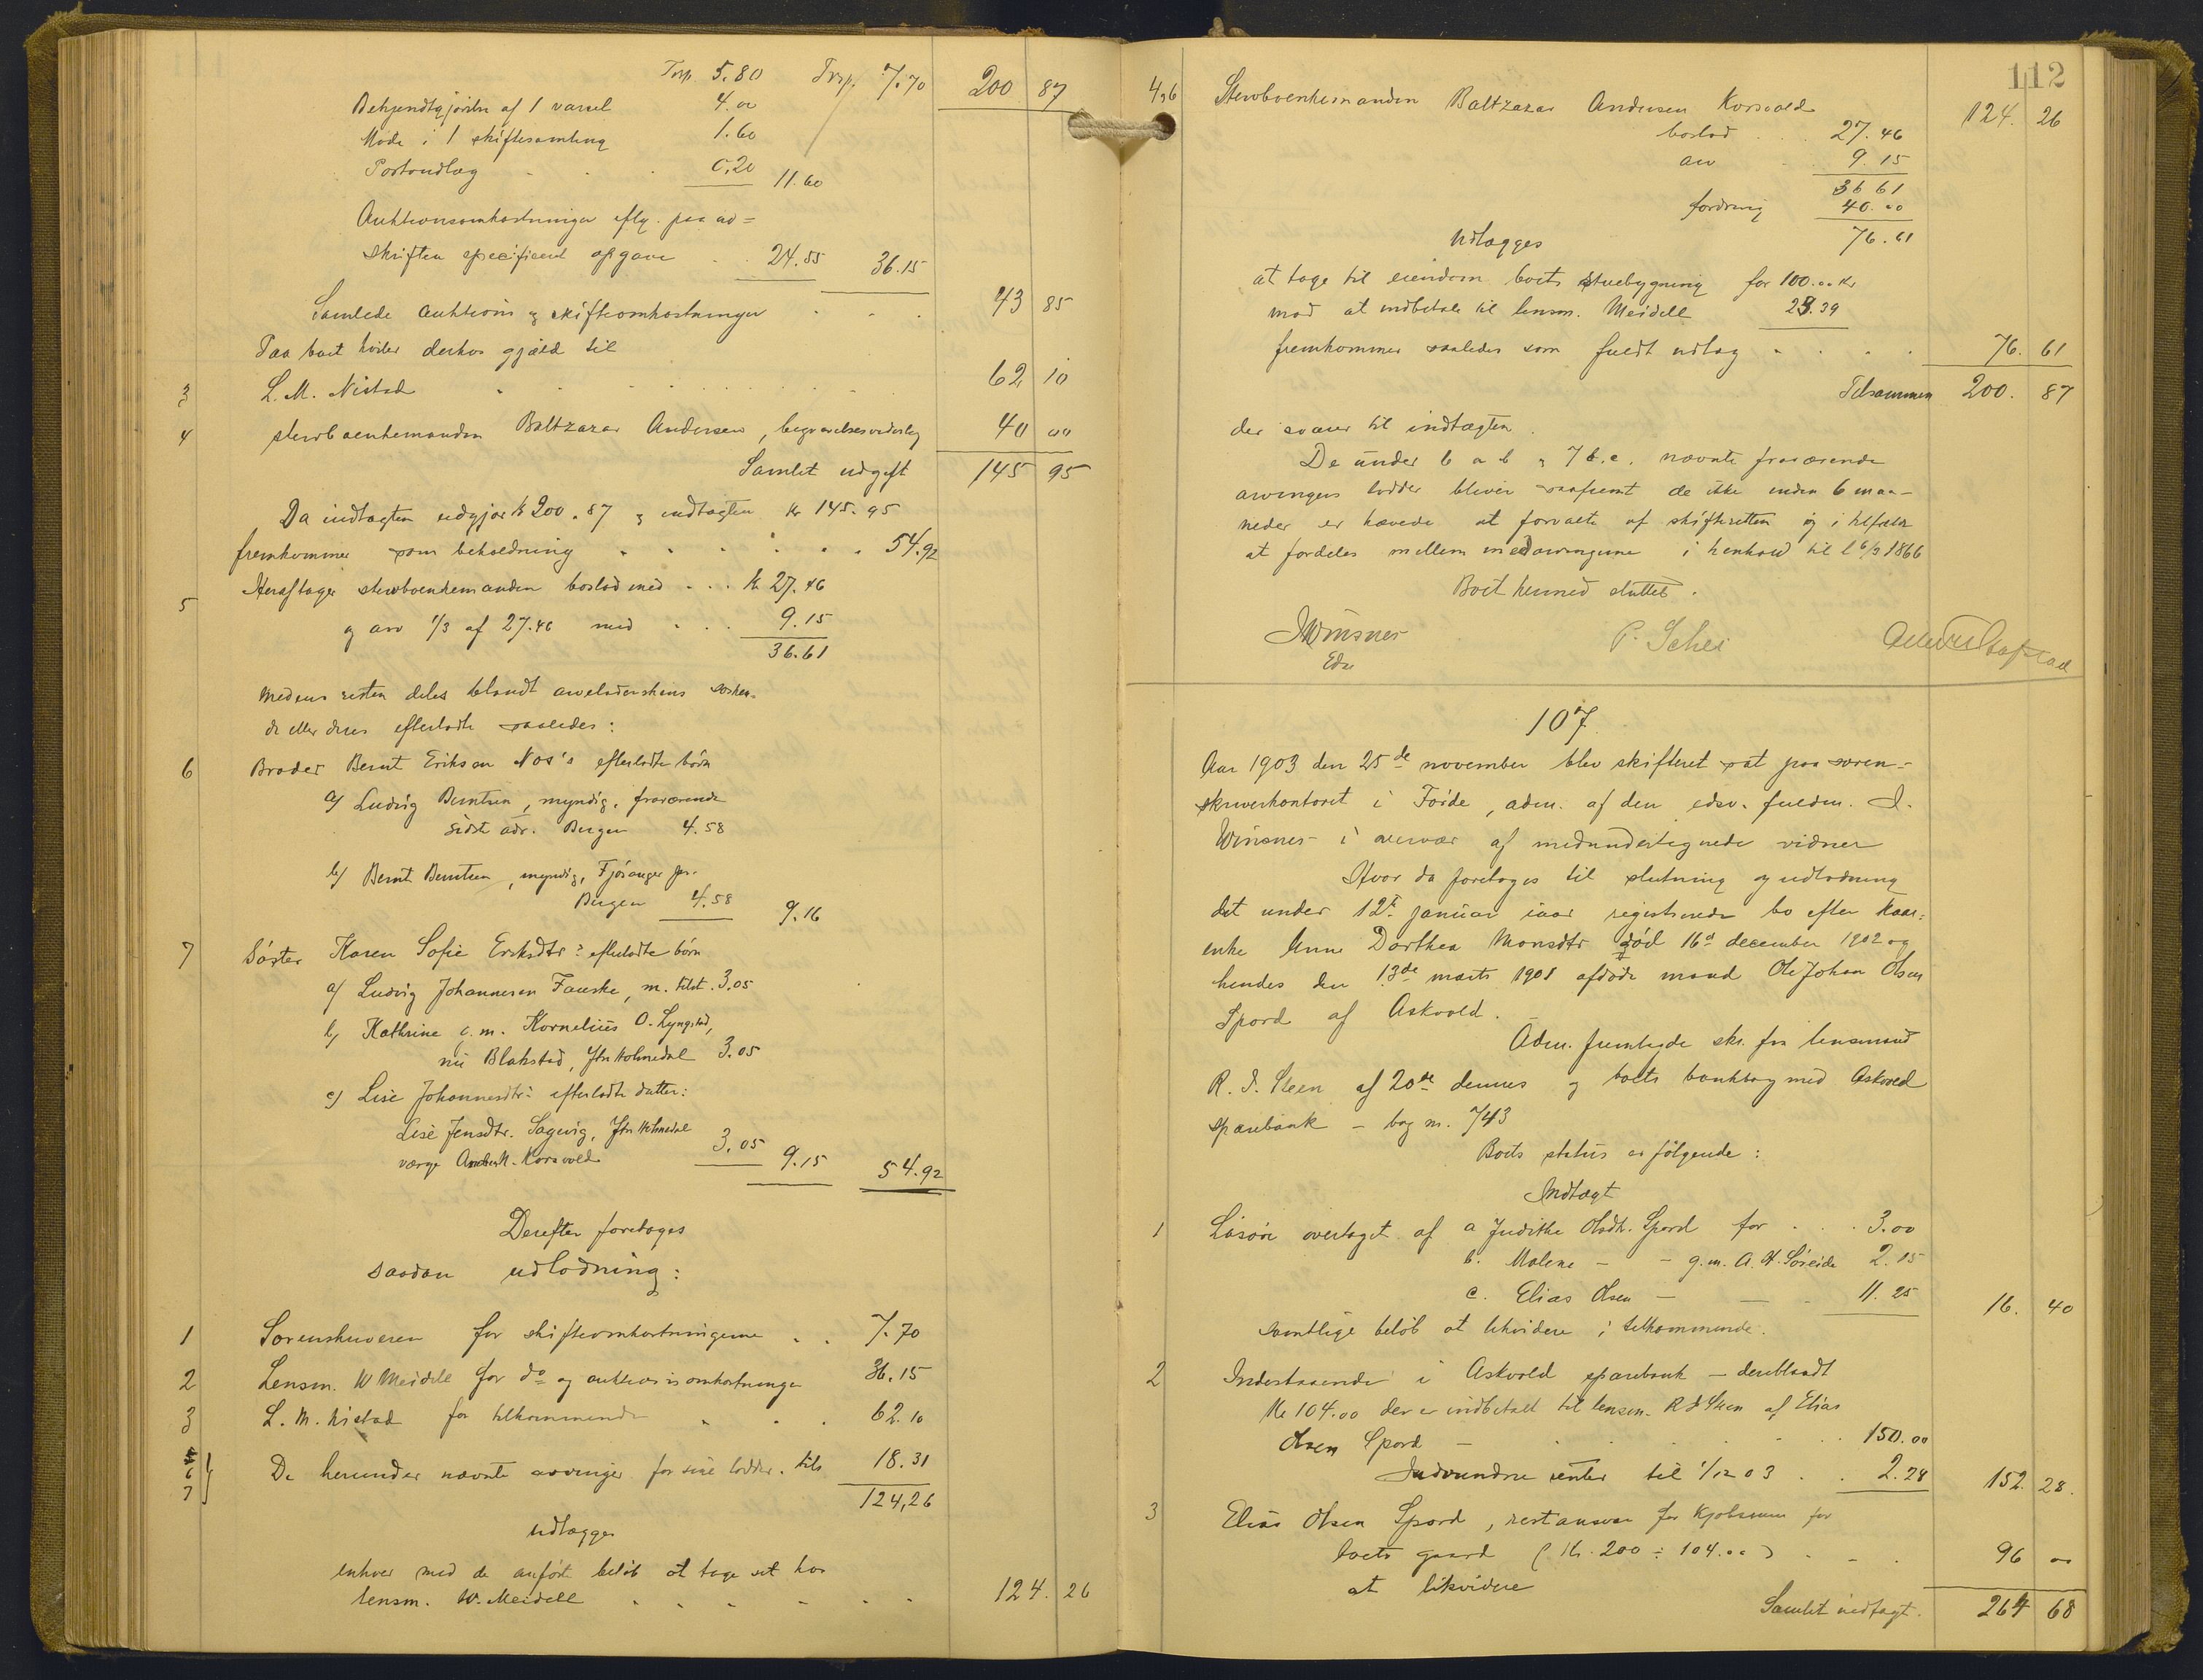 Trsp. 5.80 Trsp. 7.70 200 87
Bekjendtgjørelse af 1 varsel 4.00
Møde i 1 skiftesamling 1.60
Portoudlæg 0.20 11.60
Auktionsomkostninger eflg. paa av=
skriften specificeret opgave 24.55 36.15
Samlede auktions og skifteomkostninger 43 85
Paa boet hviler derhos gjæld til
3 L. M. Nistad 62 10
4 stervboenkemanden Baltzazar Andersen, begravelsesvederlag 40 00
Samlet udgift 145 95
Da indtægten udgjør kr 200.87 og indtægten kr 145.95
fremkommer som beholdning 54.92
5 Heraf tager stervboenkemanden boslod med kr 27.46
og arv 1/3 af 27.46 med 9.15
36.61
medens resten deles blandt arveladerskens søsken-
de eller deres efterladte saaledes:
6 Broder Bernt Erikson Nos's efterladte børn
a) Ludvig Berntsen, myndig, fraværende
sidst adr. Bergen 4.58
b) Bernt Berntsen, myndig, Fjøsanger pr.
Bergen 4.58 9.16
7 Søster Karen Sofie Eriksdtr's efterladte børn
a) Ludvig Johannesen Fauske, m. tilst. 3.05
b) Kathrine g. m. Kornelius O. Lyngstad,
nu Blakstad, Ytr. Holmedal 3.05
c) Lise Johannesdtr's efterladte datter:
Lise Jensdtr. Sagvig, Ytr. Holmedal
værge Anders N. Korsvold 3.05 9.15 54.92
Derefter foretoges
saadan udlodning:
1 Sorenskriveren for skifteomkostningerne 7.70
2 Lensm. W Meidell for do og auktionsomkostninger 36.15
3 L. M. Nistad for tilkommende 62.10
6
7 De herunder nævnte arvinger for sine lodder. tils 18.31
124,26
udlægges
enhver med de anførte beløb at tage ut hos
lensm. W. Meidell 124. 26
112
4,6 Stervboenkemanden Baltzazar Andersen Korsvold 124. 26
boslod 27.46
arv 9.15
36 61
fordring 40.00
Udlægges 76.61
at tage til eiendom boets stuebygning for 100.00 kr
mod at indbetale til lensm. Meidell 23.39
fremkommer saaledes som fuldt udlæg 76. 61
Tilsammen 200. 87
der svarer til indtægten.
De under 6 a b og 7 b.c. nævnte fraværende
arvingers lodder bliver saafremt de ikke inden 6 maa-
neder er hævede at forvalte af skifteretten og i tilfælde
at fordeles mellem medarvingerne i henhold til l 6/3 1866
Boet hermed sluttet.
JWinsnes P. Schei
Edsv
107.
Aar 1903 den 25de november blev skifteret sat paa soren-
skriverkontoret i Førde, adm. af den edsv. fuldm. J.
Winsnes i overvær af medundertegnede vidner
Hvor da foretoges til slutning og udlodning
det under 12te januar iaar registrerede bo efter kaar=
enke Anne Dorthea Monsdtr død 16de december 1902 og
hendes den 13de marts 1901 afdøde mand Ole Johan Olsen
Spord af Askvold.
Adm. fremlagde skr. fra lensmand
R. J. Steen af 20de dennes og boets bankbog med Askvold
sparebank - bog nr. 743
Boets status er følgende:
Indtægt
1 Løsøre overtaget af a Judithe Olsdtr. Spord for 3.00
b. Malene - - g.m. A. H. Søreide 2.15
c. Elias Olsen - - 11.25 16. 40
samtlige beløb at likvidere i tilkommende.
2 Indestaaende i Askvold sparebank - deriblandt
Kr 104.00 der er indbetalt til lensm. R J Steen af Elias
Olsen Spord - 150.00
Indvundne renter til 1/12 03 2.28 152. 28.
3 Elias Olsen Spord, restansvar for kjøbesum for
boets gaard (Kr. 200 ÷ 104.00) 96 00
at likvidere
Samlet indtægt. 264 68